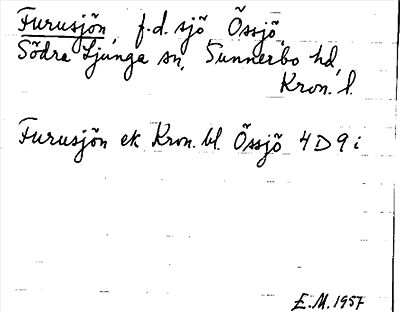 Furusjön, f.d. sjö, Össjö,
Södra Ljunga sn, Sunnerbo hd,
Kron. l.
Furusjön ek Kron. bl. Össjö 4D9i
E.M. 1957